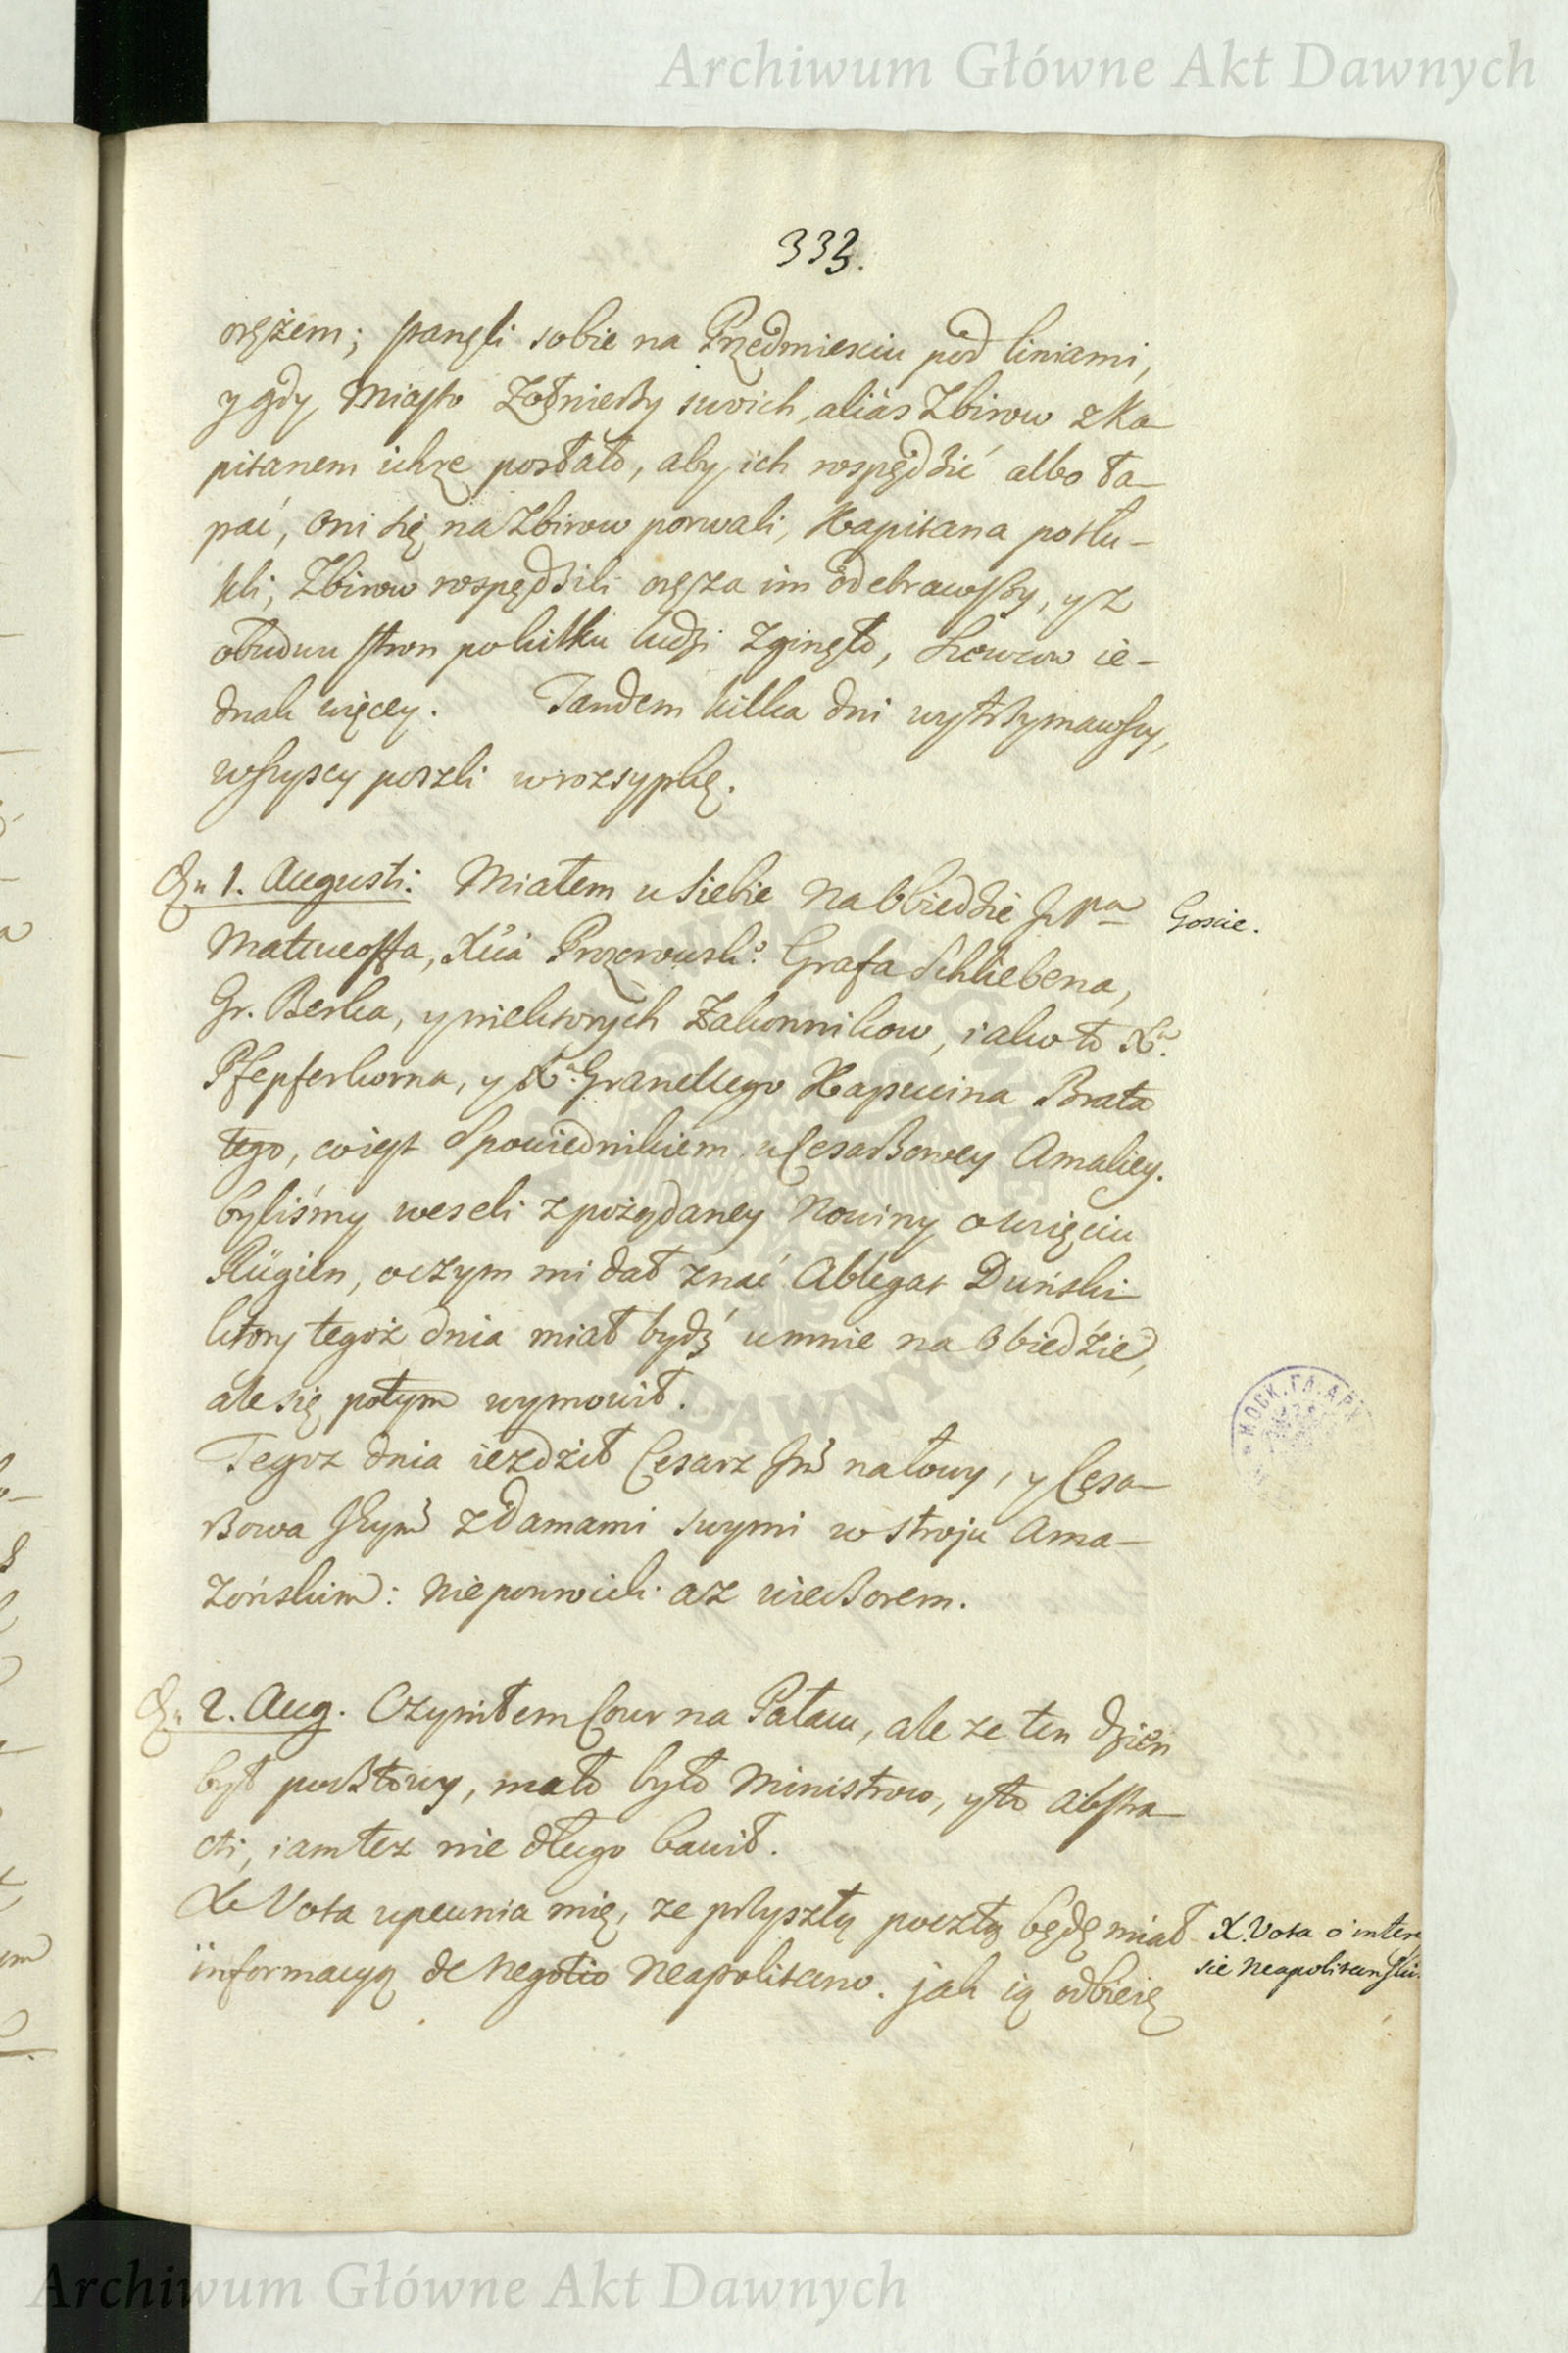 Archiwum Główne Akt Dawnych
333.
orężem; stanęli sobie na Przedmiesciu pod liniami,
y gdy Miasto Zołnierzy swoich, alias Zbirow z Ka-
pitanem ichze posłało, aby ich rospędzić albo ła-
pać, oni się na Zbirow porwali, Kapitana potłu-
kli, Zbirow rospędzili oręza im odebrawszy, y z
obudwu stron po kilku ludzi zginęło, Szewcow ie-
dnak więcey. Tandem kilka dni wytrzymawszy,
wszyscy poszli w rozsypkę.
Dn 1. Augusti: Miałem u siebie na Obiedzie JPna
Matweoffa, Xcia Prozorowsko. Grafa Schliebena,
Gr. Berka, y niektorych Zakonnikow, iako to Xa.
Pfepferkorna, y Xa. Granellego Kapucina Brata
tego, co iest Spowiednikiem u Cesarzowey Amaliey.
byliśmy weseli z pożądaney Nowiny o wzięciu
Rügien, o czym mi dał znać Ablegat Duński
ktory tegoż dnia miał bydź u mnie na Obiedzie,
ale się potym wymowił.
Tegoz dnia iezdził Cesarz Jmć na łowy, y Cesa-
rzowa Jeymć z Damami swymi w stroju Ama-
zońskim: nie powrocili az wieczorem.
Dn 2. Aug. Czyniłem Cour na Pałacu, ale ze ten dzien
był pocztowy, mało było Ministrow, y to abstra-
cti, iam tez nie długo bawił.
X. Vota upewnia mię, ze przyszłą pocztą będę miał
informacyą de negotio Neapolitano. jak ią odbierę
Goscie.
X. Vota o intere
sie Neapolitanski.
МОСК. ГЛ. АРХ
Archiwum Główne Akt Dawnych